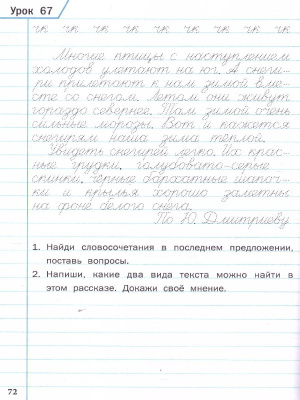 Урок 67
чк чк чк чк чк чк чк чк чк
Многие птицы с наступлением
холодов улетают на юг. А снеги-
ри прилетают к нам зимой вме-
сте со снегом. Летом они живут
гораздо севернее. Там зимой очень
сильные морозы. Вот и кажется
снегирям наша зима тёплой.
Увидеть снегирей легко. Их крас-
ные грудки, голубовато-серые
спинки, чёрные бархатные шапоч-
ки и крылья хорошо заметны
на фоне белого снега.
По Ю. Дмитриеву
1. Найди словосочетания в последнем предложении,
поставь вопросы.
2. Напиши, какие два вида текста можно найти в
этом рассказе. Докажи своё мнение.
72